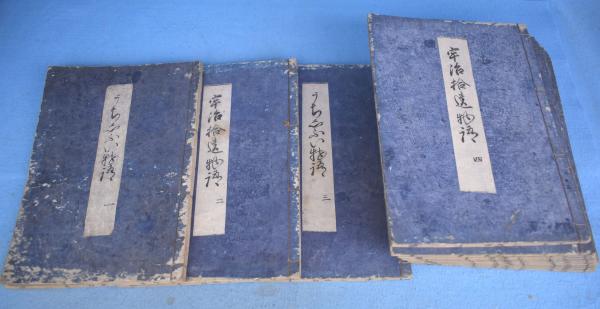 うちしふい物語 一
宇治拾遺物語 二
うちしふい物語 三
宇治拾遺物語 四